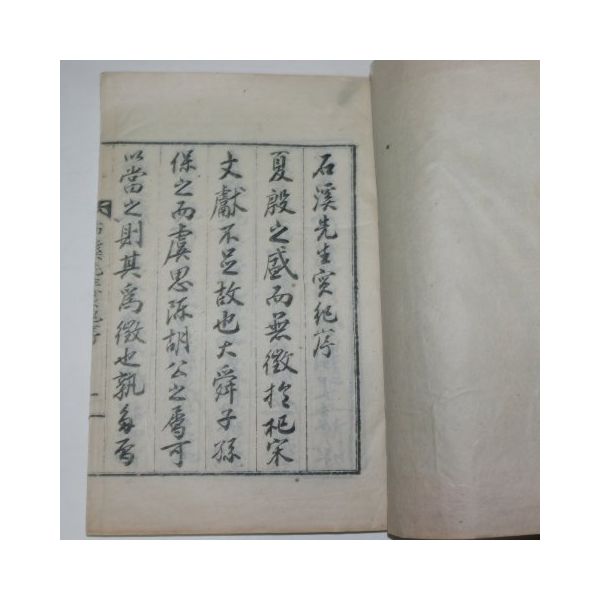 石溪先生實紀序
夏殷之盛而無徵於杞宋
文獻不足故也大舜子孫
保之而虞思陳胡公之屬可
以當之則其爲徵也孰多焉